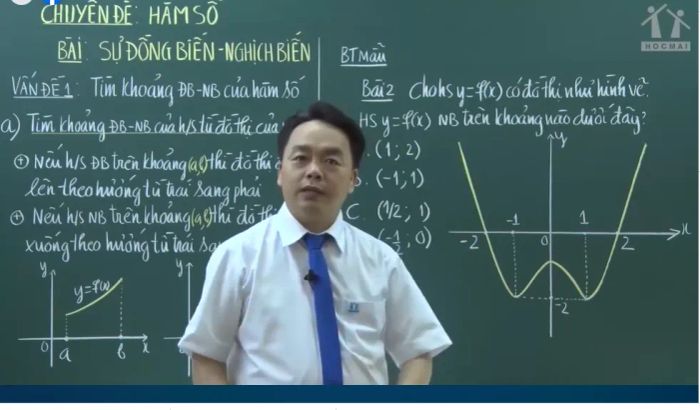 CHUYÊN ĐỀ: HÀM SỐ
BÀI: SỰ ĐỒNG BIẾN - NGHỊCH BIẾN
VẤN ĐỀ 1: Tìm khoảng ĐB-NB của hàm số
a) Tìm khoảng ĐB-NB của h/s từ đồ thị của
⊕ Nếu h/s ĐB trên khoảng (a,b) thì đồ thị
lên theo hướng từ trái sang phải
⊕ Nếu h/s NB trên khoảng (a,b) thì đồ thị
xuống theo hướng từ trái
y
y=f(x)
0 a b x
y
BT Mẫu
Bài 2 Cho hs y=f(x) có đồ thị như hình vẽ.
HS y=f(x) NB trên khoảng nào dưới đây?
. (1; 2)
. (-1; 1)
C. (1/2; 1)
(-1/2; 0)
y
-1 1
-2 0 2 x
-2
HOCMAI